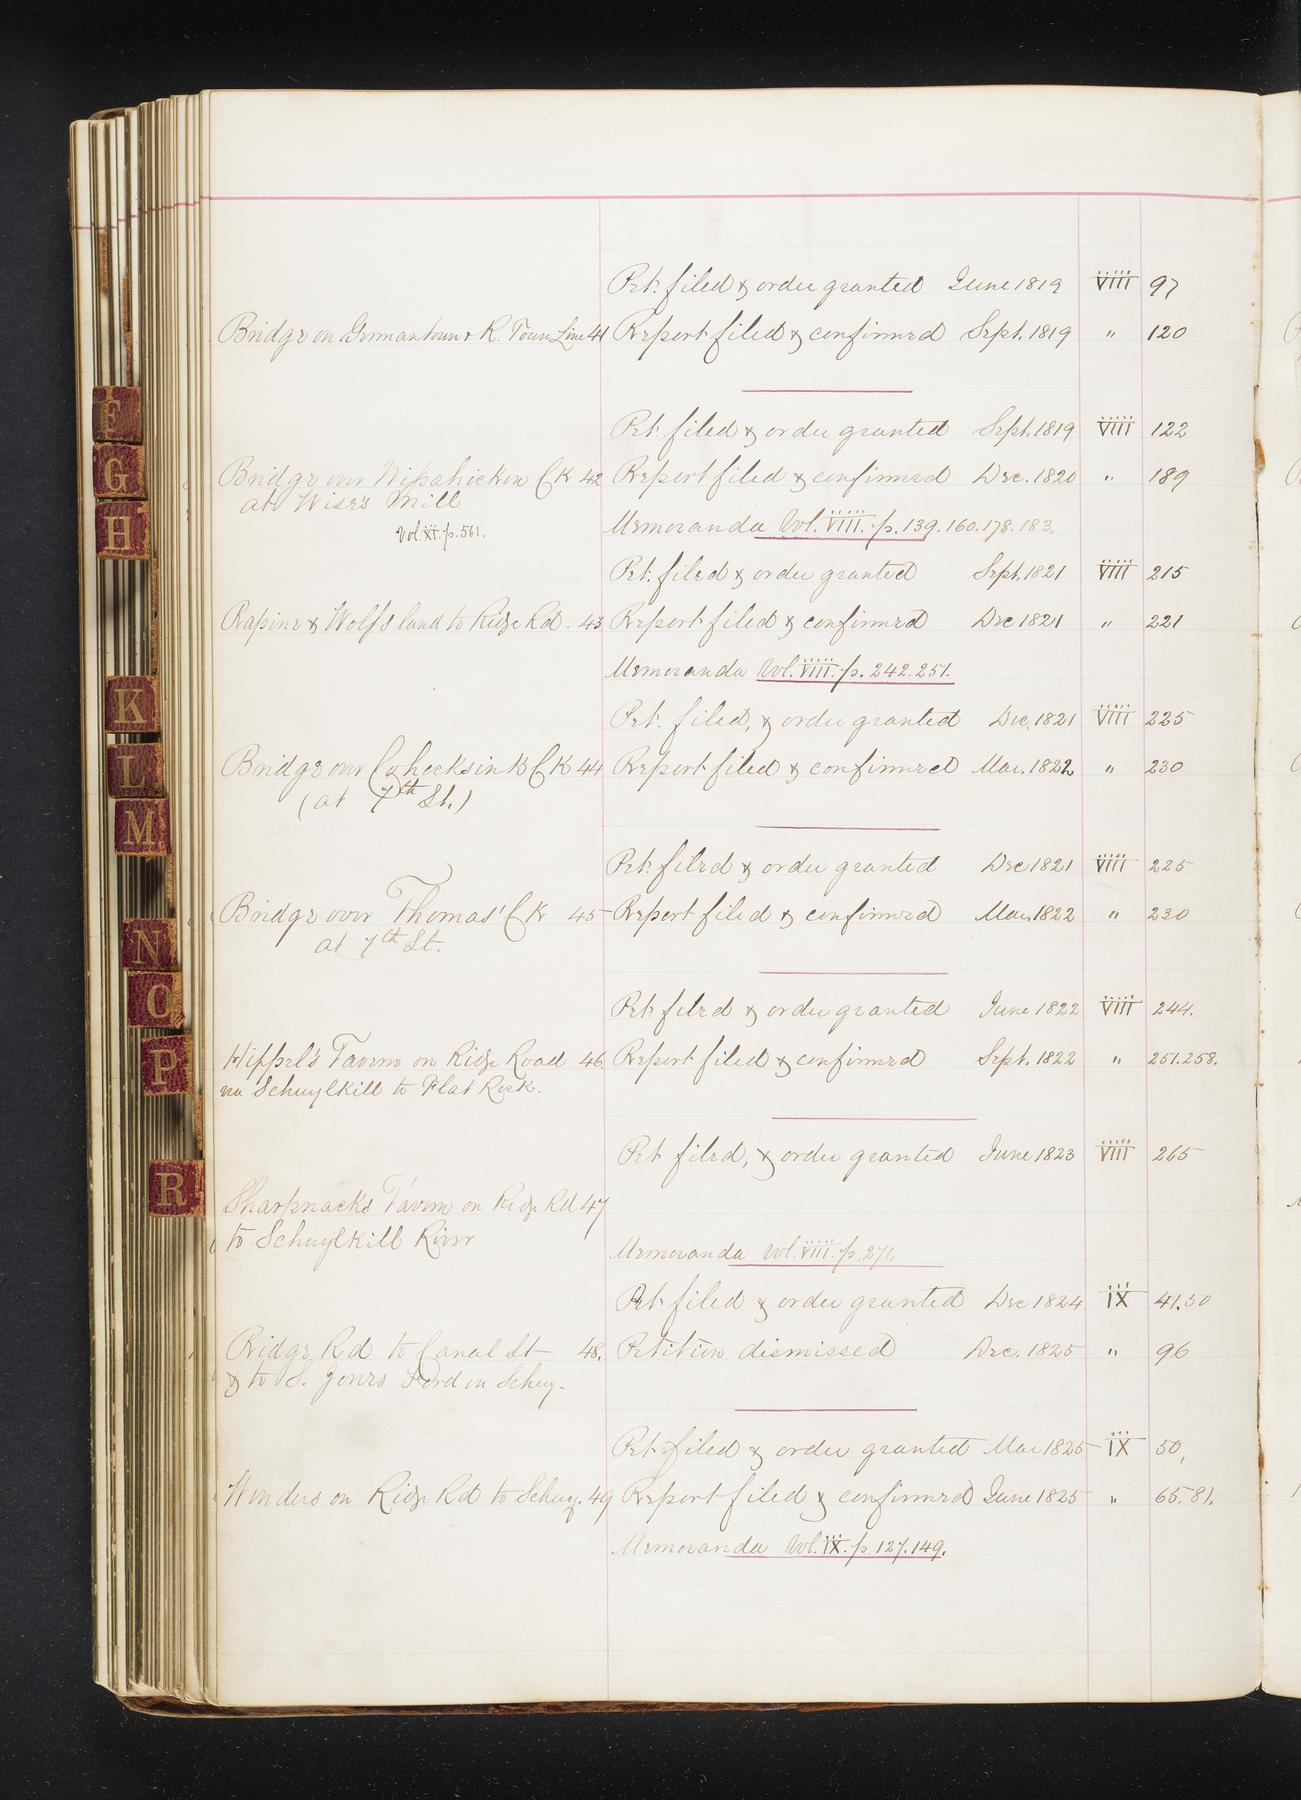 Pet. filed & order granted June 1819 VIII 97
Bridge on Germantown & R. Town Line 41 Report filed & confirmed Sept. 1819 " 120
Pet. filed & order granted Sept. 1819 VIII 122
Bridge over Wissahickon Ck 42 Report filed & confirmed Dec. 1820 " 189
at Wise's Mill
Memoranda Vol. VIII. p. 139.160.178.183.
Vol. XI. p. 561.
Pet. filed & order granted Sept. 1821 VIII 215
Rapine & Wolf's land to Ridge Rd. 43 Report filed & confirmed Dec 1821 " 221
Memoranda Vol. VIII. p. 242.251.
Pet. filed, & order granted Dec. 1821 VIII 225
Bridge over Cohocksink Ck 44 Report filed & confirmed Mar. 1822 " 230
(at 7th St.)
Pet. filed & order granted Dec 1821 VIII 225
Bridge over Thomas' Ck 45 Report filed & confirmed Mar. 1822 " 230
at 7th St.
Pet. filed & order granted June 1822 VIII 244.
Hippel's Tavern on Ridge Road 46. Report filed & confirmed Sept. 1822 " 251.258.
via Schuylkill to Flat Rock.
Pet filed, & order granted June 1823 VIII 265
Sharpnacks Tavern on Ridge Rd 47
to Schuylkill River
Memoranda Vol. VIII. p. 271.
Pet. filed & order granted Dec 1824 IX 41.50
Ridge Rd to Canal St 48. Petition dismissed Dec. 1825 " 96
& to S. Jones Ford on Schuy.
Pet. filed & order granted Mar 1825 IX 50,
Winders on Ridge Rd to Schuy. 49 Report filed & confirmed June 1825 " 65.81.
Memoranda Vol. IX. p. 127.149.
F
G
H
K
L
M
N
O
P
R